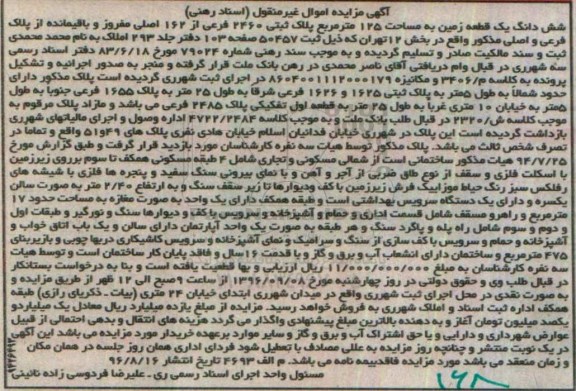 آگهی مزایده اموال غیرمنقول (اسناد رهنی)
شش دانگ یک قطعه زمین به مساحت ۱۲۵ مترمربع پلاک ثبتی ۲۴۶۰ فرعی از ۱۶۲ اصلی مفروز و باقیمانده از پلاک
فرعی و اصلی مذکور واقع در بخش ۱۲ تهران که ذیل ثبت ۵۰۴۵۷ صفحه ۱۰۳ دفتر جلد ۲۹۳ املاک به نام محمد محمدی
ثبت و سند مالکیت صادر و تسلیم گردیده و به موجب سند رهنی شماره ۷۹۰۲۴ مورخ ۸۳/۶/۱۸ دفتر اسناد رسمی
سه شهرری در قبال وام دریافتی آقای ناصر محمدی در رهن بانک ملت قرار گرفته و منجر به صدور اجرائیه و تشکیل
پرونده به کلاسه م/۳۴۰۶ و مکانیزه ۸۶۰۴۰۰۱۱۱۲۰۰۰۱۷۹ در اجرای ثبت شهرری گردیده است پلاک مذکور دارای
حدود شمالاً به طول ۵متر به پلاک ثبتی ۱۶۲۵ و ۱۶۲۶ فرعی شرقا به طول ۲۵ متر به پلاک ۱۶۵۵ فرعی جنوبا به طول
۵متر به خیابان ۱۰ متری غربا به طول ۲۵ متر به قطعه اول تفکیکی پلاک ۲۴۸۵ فرعی می باشد و مازاد پلاک مرقوم به
موجب کلاسه ش/۲۳۲۰ در قبال طلب بانک ملت و به موجب کلاسه ۴۷۲۲/۲۴۸۴ اداره وصول و اجرای مالیاتهای شهرری
بازداشت گردیده است این پلاک در شهرری خیابان فدائیان اسلام خیابان هادی نفری پلاک های ۴۹و۵۱ واقع و تماما در
تصرف شخص ثالث می باشد. پلاک مذکور توسط هیات سه نفره کارشناسان مورد بازدید قرار گرفت و طبق گزارش مورخ
۹۴/۷/۲۵ هیات مذکور ساختمانی است از شمالی مسکونی و تجاری شامل ۴ طبقه مسکونی همکف تا سوم برروی زیرزمین
با اسکلت فلزی و سقف از نوع طاق ضربی از آجر و آهن و با نمای بیرونی سنگ سفید و پنجره ها فلزی با شیشه های
رفلکس سبز رنگ حیاط موزاییک فرش زیرزمین با کف ودیوارها تا زیر سقف سنگ و به ارتفاع ۲/۴۰ متر به صورت سالن
یکسره و دارای یک دستگاه سرویس بهداشتی است و طبقه همکف دارای یک واحد به صورت مغازه به مساحت حدود ۱۷
مترمربع و راهرو مسقف شامل قسمت اداری و حمام و آشپزخانه و سرویس با کف و دیوارها سنگ و نورگیر و طبقات اول
و دوم و سوم شامل راه پله و پاگرد سنگ و هر طبقه به صورت یک واحد آپارتمان دارای سالن و یک باب اتاق خواب و
آشپزخانه و حمام و سرویس با کف سازی از سنگ و سرامیک و نمای آشپزخانه و سرویس کاشیکاری دربها چوبی و بازیربنای
۴۷۵ مترمربع و ساختمان دارای انشعاب آب و برق و گاز و با قدمت ۱۶سال و فاقد پایان کار ساختمان است و توسط هیات
سه نفره کارشناسان به مبلغ ۱۱/۰۰۰/۰۰۰/۰۰۰ ریال ارزیابی و بها قطعیت یافته است و بنا به درخواست بستانکار
در قبال طلب وی و حقوق دولتی در روز چهارشنبه مورخ ۱۳۹۶/۰۹/۰۸ از ساعت ۹صبح الی ۱۲ ظهر از طریق مزایده و
به صورت نقدی در محل اجرای ثبت شهرری واقع در میدان شهرری ابتدای خیابان ۲۴ متری (بیات ـ ذکریای رازی) طبقه
همکف اداره ثبت اسناد و املاک شهرری به فروش خواهد رسید. مزایده از مبلغ یازده میلیارد ریال معادل یک میلیاردو
یکصد میلیون تومان آغاز و به دهنده بالاترین مبلغ پیشنهادی واگذار می گردد. هزینه های انتقال و بدهی احتمالی از قبیل
عوارض شهرداری و دارایی و یا حق اشتراک آب و برق و گاز و سایر موارد برعهده خریدار مورد مزایده می باشد این آگهی
در یک نوبت منتشر و چنانچه روز مزایده به عللی مصادف با تعطیل شود فردای اداری همان روز جلسه در همان مکان
و زمان منعقد می باشد مورد مزایده فاقدبیمه نامه می باشد. م الف ۴۶۹۳ تاریخ انتشار ۹۶/۸/۱۶
مسئول واحد اجرای اسناد رسمی ری ـ علیرضا فردوسی زاده نائینی